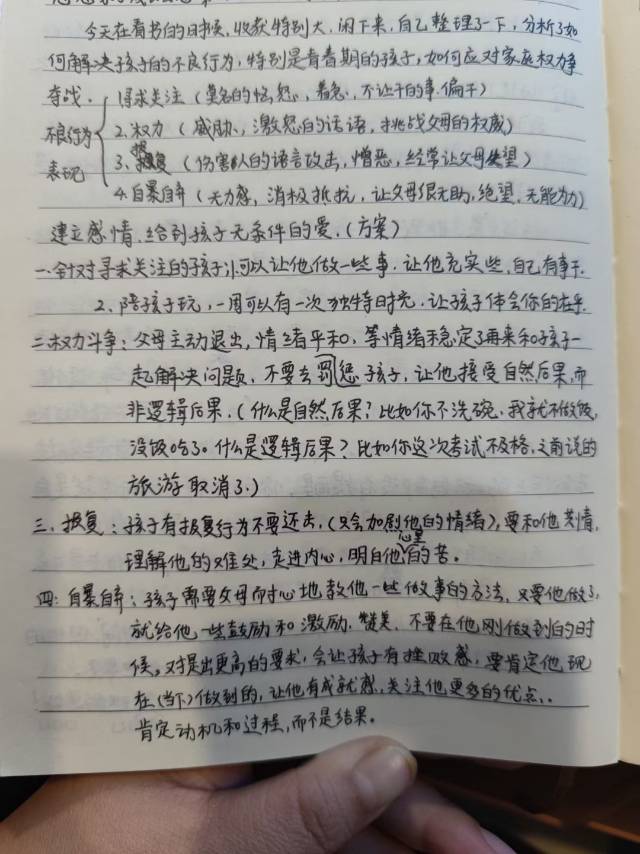 今天在看书的时候,收获特别大,闲下来,自己整理了一下,分析了如
何解决孩子的不良行为,特别是青春期的孩子,如何应对家庭权力争
夺战.
不良行为
表现
1.寻求关注(莫名的忧怨,着急,不让干的事,偏干)
2.权力(威胁,激怒的话语,挑战父母的权威)
3、报复(伤害人的语言攻击,憎恶,经常让父母失望)
4.自暴自弃(无力感,消极抵抗,让父母很无助,绝望,无能为力)
建立感情,给到孩子无条件的爱.(方案)
一.针对寻求关注的孩子,1.可以让他做一些事.让他充实些,自己有事干.
2、陪孩子玩,一周可以有一次独特时光.让孩子体会你的在乎.
二.权力斗争:父母主动退出,情绪平和,等情绪稳定了再来和孩子一
起解决问题,不要去罚惩孩子,让他接受自然后果,而
非逻辑后果.(什么是自然后果?比如你不洗碗.我就不做饭,
没饭吃了。什么是逻辑后果?比如你这次考试不及格,之前说的
旅游取消了.)
三、报复:孩子有报复行为不要还击,(只会加剧他的情绪),要和他共情,
理解他的难处,走进内心,明白他心里的苦。
四:自暴自弃:孩子需要父母耐心地教他一些做事的方法,只要他做了,
就给他一些鼓励和激励,赞美.不要在他刚做到的时
候,对提出更高的要求,会让孩子有挫败感,要肯定他现
在(当下)做到的,让他有成就感,关注他更多的优点.
肯定动机和过程,而不是结果。